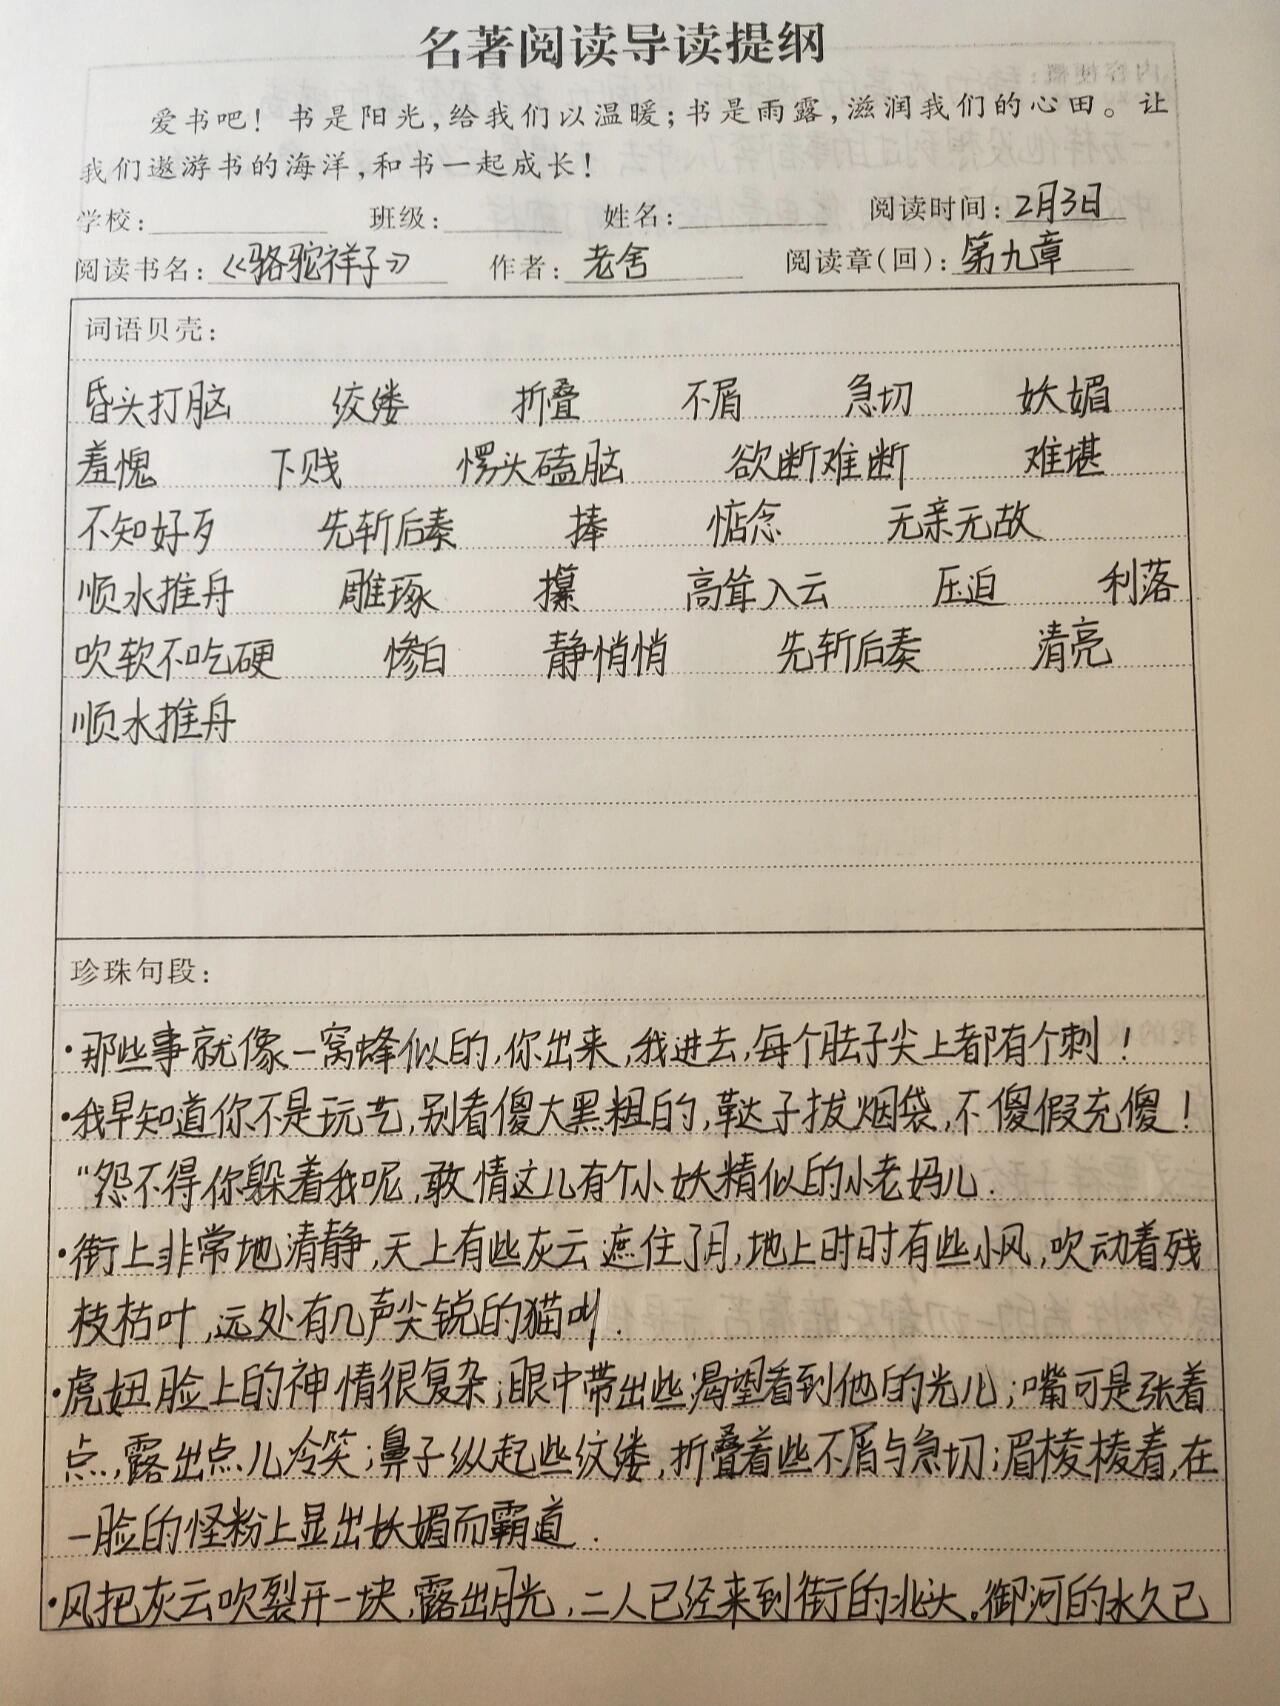 名著阅读导读提纲
爱书吧！书是阳光,给我们以温暖;书是雨露,滋润我们的心田。让
我们遨游书的海洋,和书一起成长!
学校: 班级: 姓名: 阅读时间: 2月3日
阅读书名:《骆驼祥子》 作者: 老舍 阅读章(回): 第九章
词语贝壳:
昏头打脑 绞缕 折叠 不屑 急切 妖媚
羞愧 下贱 愣头磕脑 欲断难断 难堪
不知好歹 先斩后奏 捧 惦念 无亲无故
顺水推舟 雕琢 攥 高耸入云 压迫 利落
吹软不吃硬 惨白 静悄悄 先斩后奏 清亮
顺水推舟
珍珠句段:
·那些事就像一窝蜂似的,你出来,我进去,每个肚子尖上都有个刺!
·我早知道你不是玩艺,别看傻大黑粗的,鞑子拔烟袋,不傻假充傻!
“怨不得你躲着我呢,敢情这儿有个小妖精似的小老妈儿.
·街上非常地清静,天上有些灰云遮住了月,地上时时有些小风,吹动着残
枝枯叶,远处有几声尖锐的猫叫.
·虎妞脸上的神情很复杂;眼中带出些渴望看到他的光儿;嘴可是张着
点,露出点儿冷笑;鼻子纵起些纹缕,折叠着些不屑与急切;眉棱棱着,在
一脸的怪粉上显出妖媚而霸道.
·风把灰云吹裂开一块,露出月光,二人已经来到街的北头。御河的水久已